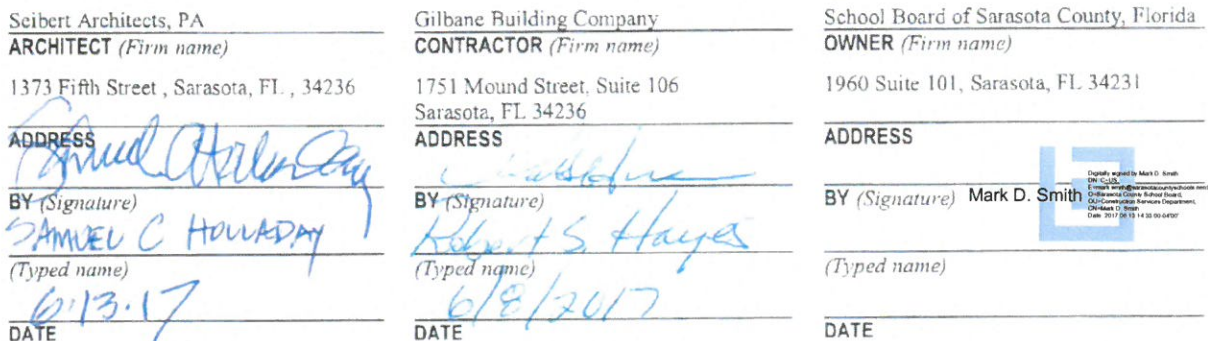 Seibert Architects, PA
ARCHITECT (Firm name)
1373 Fifth Street , Sarasota, FL , 34236
ADDRESS
BY (Signature)
SAMUEL C HOLLADAY
(Typed name)
6.13.17
DATE
Gilbane Building Company
CONTRACTOR (Firm name)
1751 Mound Street, Suite 106
Sarasota, FL 34236
ADDRESS
BY (Signature)
Robert S. Hayes
(Typed name)
6/8/2017
DATE
School Board of Sarasota County, Florida
OWNER (Firm name)
1960 Suite 101, Sarasota, FL 34231
ADDRESS
BY (Signature) Mark D. Smith
Digitally signed by Mark D. Smith
DN: C=US,
O=Sarasota County School Board,
OU=Construction Services Department,
CN=Mark D. Smith
(Typed name)
DATE